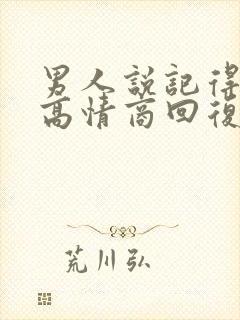 男人說記得
高情商回復
荒川弘